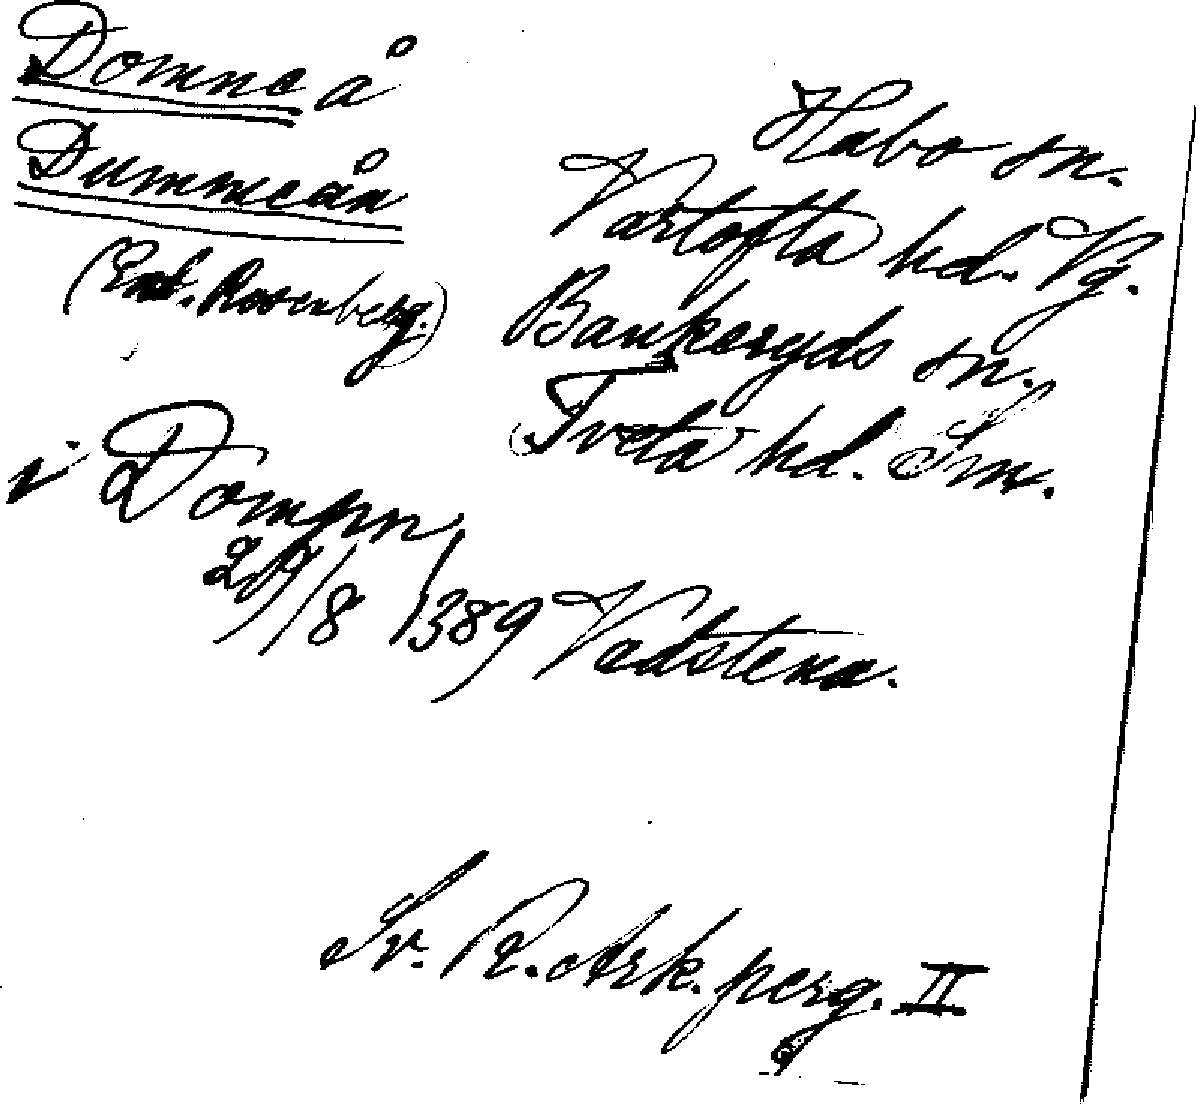 Domne å
Dummeån
(Enl. Rosenberg.)
Habo sn.
Vartofta hd. Vg.
Bankeryds sn.
Tveta hd. Sm.
i Dompn
/8 1389 Vadstena.
Sv. R. Ark. perg. II